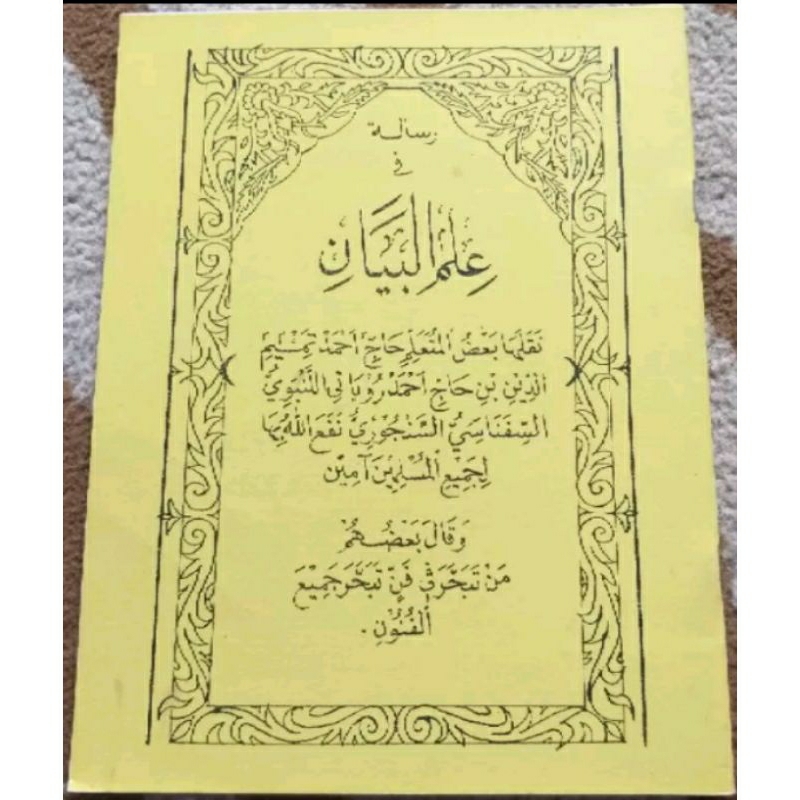 رسالة
في
عِلْمِ الْبَيَانِ
نَقَلَهَا بَعْضُ الْمُتَعَلِّمِ حَاجّ اَحْمَدْ تَمْيِيمِ
الدِّيْنِ بْنِ حَاجّ اَحْمَدْ رُوْيَانِى الْبَنْبَوِيُّ
السَّفَنَاسِيُّ السَّنْجُوْرِيُّ نَفَعَ اللّٰهُ بِهَا
لِجَمِيْعِ الْمُسْلِمِيْنَ آمِيْنَ
وَقَالَ بَعْضُهُمْ
مَنْ تَبَحَّرَ فِيْ فَنٍّ تَبَحَّرَ جَمِيْعَ
الْفُنُوْنِ .